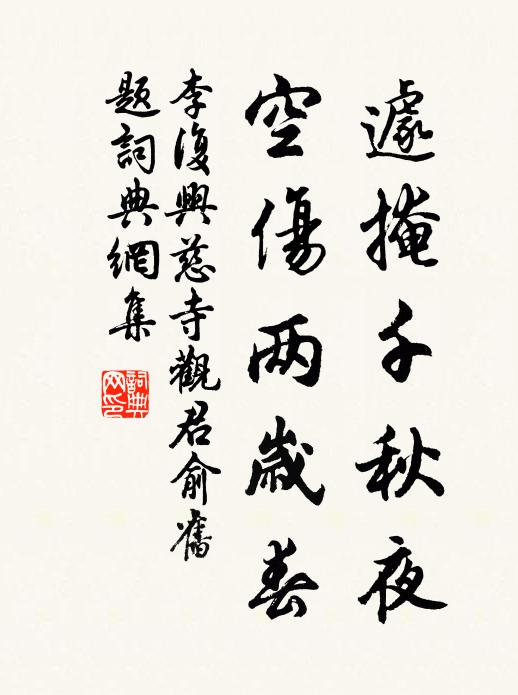 遽掩千秋夜
空傷两歲春
李復興慈寺觀君俞舊
題詞典網集
詞典
网印